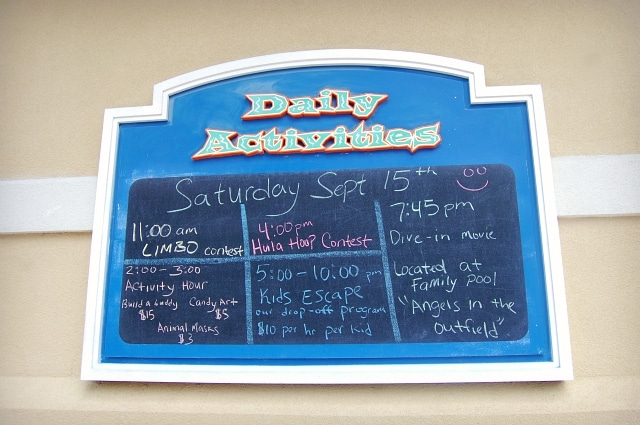 Daily
Activities
Saturday Sept 15th
11:00 am
LIMBO contest
4:00 pm
Hula Hoop Contest
2:00 - 3:00
Activity Hour
Build a buddy Candy Art
$15 $5
Animal Masks
$3
5:00 - 10:00 pm
Kids Escape
our drop-off program
$10 per hr per kid
7:45 pm
Dive-in movie
Located at
family pool
"Angels in the
outfield"